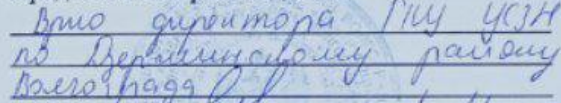 Врио директора ГКУ ЦСЗН
по Дзержинскому району
Волгограда